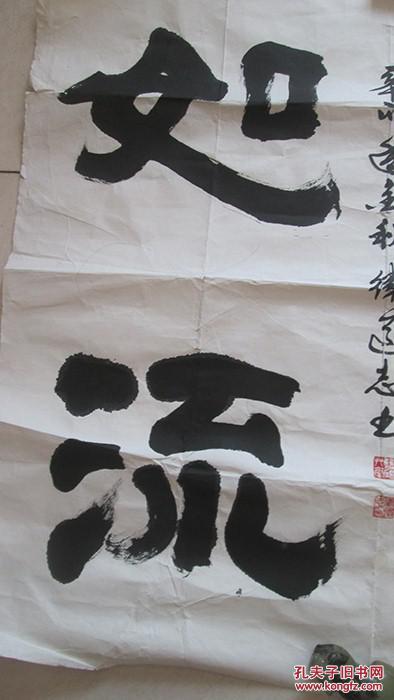 如
流
金秋
道志书
孔夫子旧书网
www.kongfz.com